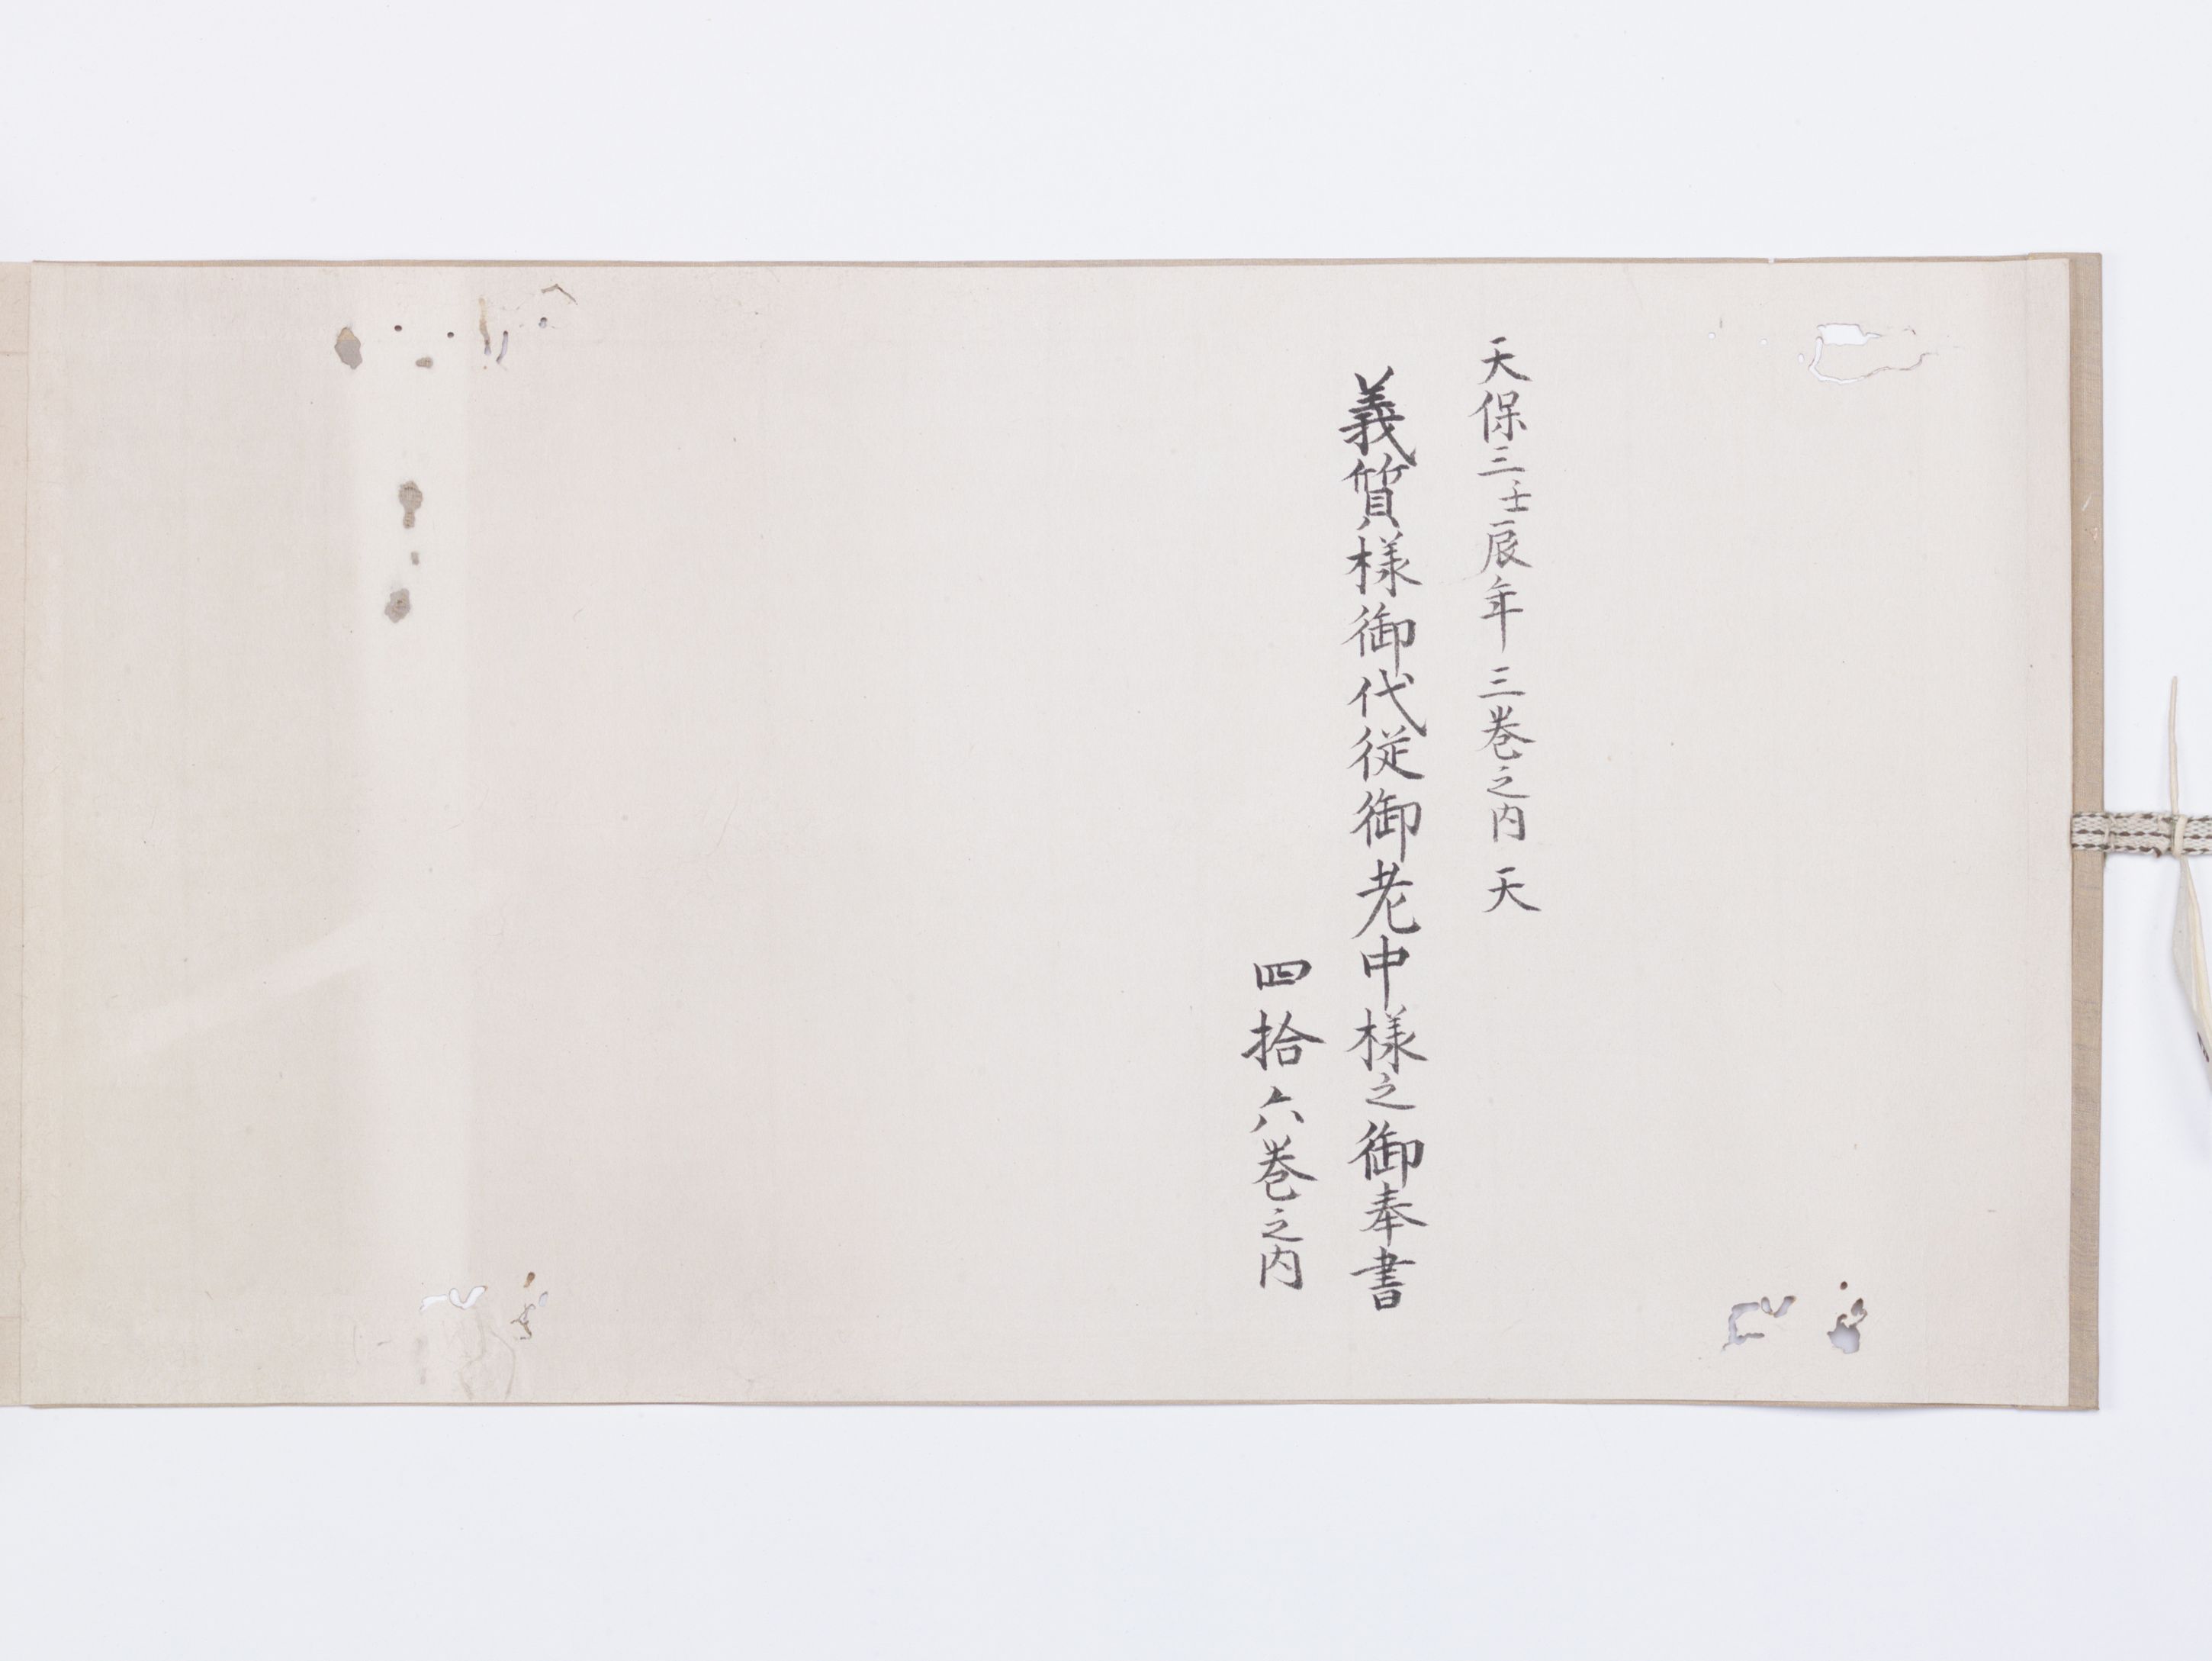 天保三壬辰年 三巻之内 天
義質様御代従御老中様之御奉書
四拾六巻之内